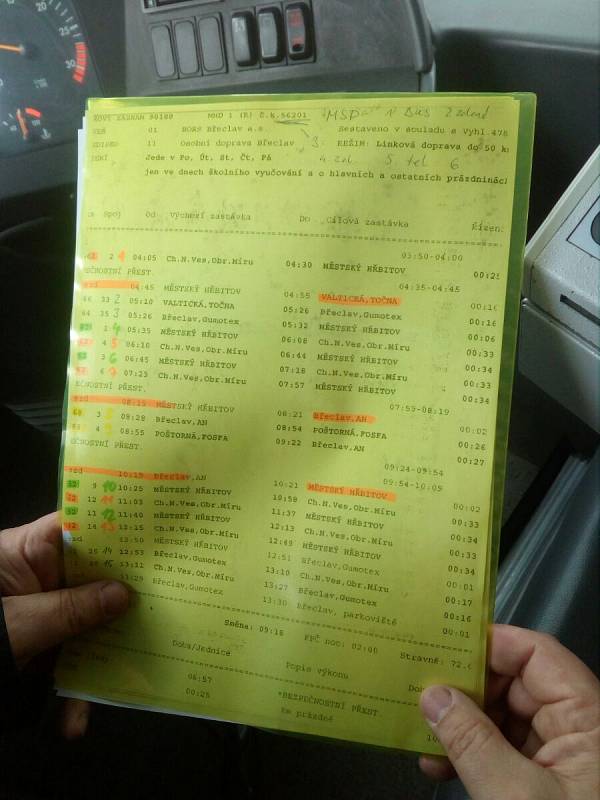 KOVÝ ZÁZNAM 90180 MHD 1 (R) Č.k.56201 MSD
01 BORS Břeclav a.s Sestaveno v souladu s Vyhl.478
11 Osobní doprava Břeclav 3. REŽIM: Linková doprava do 50 k
Jede v Po, Út, St, Čt, Pá 5 6
jen ve dnech školního vyučování a o hlavních a ostatních prázdninách
Spoj Od Výchozí zastávka Do Cílová zastávka Řízen
03:50-04:00
2 1 04:05 Ch.N.Ves,Obr.Míru 04:30 MĚSTSKÝ HŘBITOV 00:25
EČNOSTNÍ PŘEST. 04:35-04:45
ezd 04:45 MĚSTSKÝ HŘBITOV 04:55 VALTICKÁ,TOČNA
33 2 05:10 VALTICKÁ,TOČNA 05:26 Břeclav,Gumotex 00:16
35 3 05:26 Břeclav,Gumotex 05:32 MĚSTSKÝ HŘBITOV 00:06
1 4 05:35 MĚSTSKÝ HŘBITOV 06:08 Ch.N.Ves,Obr.Míru 00:33
4 5 06:10 Ch.N.Ves,Obr.Míru 06:44 MĚSTSKÝ HŘBITOV 00:34
3 6 06:45 MĚSTSKÝ HŘBITOV 07:18 Ch.N.Ves,Obr.Míru 00:33
6 7 07:23 Ch.N.Ves,Obr.Míru 07:57 MĚSTSKÝ HŘBITOV 00:34
EČNOSTNÍ PŘEST. 07:59-08:19
ezd 08:19 MĚSTSKÝ HŘBITOV 08:21 Břeclav,AN 00:02
3 8 08:28 Břeclav,AN 08:54 POŠTORNÁ,FOSFA 00:26
4 9 08:55 POŠTORNÁ,FOSFA 09:22 Břeclav,AN 00:27
EČNOSTNÍ PŘEST. 09:24-09:54
09:54-10:09
ezd 10:19 Břeclav,AN 10:21 MĚSTSKÝ HŘBITOV 00:02
9 10 10:25 MĚSTSKÝ HŘBITOV 10:58 Ch.N.Ves,Obr.Míru 00:33
12 11 11:03 Ch.N.Ves,Obr.Míru 11:37 MĚSTSKÝ HŘBITOV 00:34
11 12 11:40 MĚSTSKÝ HŘBITOV 12:13 Ch.N.Ves,Obr.Míru 00:33
14 13 12:15 Ch.N.Ves,Obr.Míru 12:49 MĚSTSKÝ HŘBITOV 00:34
ezd 12:50 MĚSTSKÝ HŘBITOV 12:51 Břeclav,Gumotex 00:01
14 12:53 Břeclav,Gumotex 13:10 Ch.N.Ves,Obr.Míru 00:17
15 13:11 Ch.N.Ves,Obr.Míru 13:27 Břeclav,Gumotex 00:16
Břeclav,Gumotex 13:30 Břeclav, parkoviště 00:01
Směna: 09:18 KPČ noc: 02:00 Stravné: 72.
Doba/Jednice Popis výkonu Dob
06:57 *BEZPEČNOSTNÍ PŘEST
00:25 Km prázdné